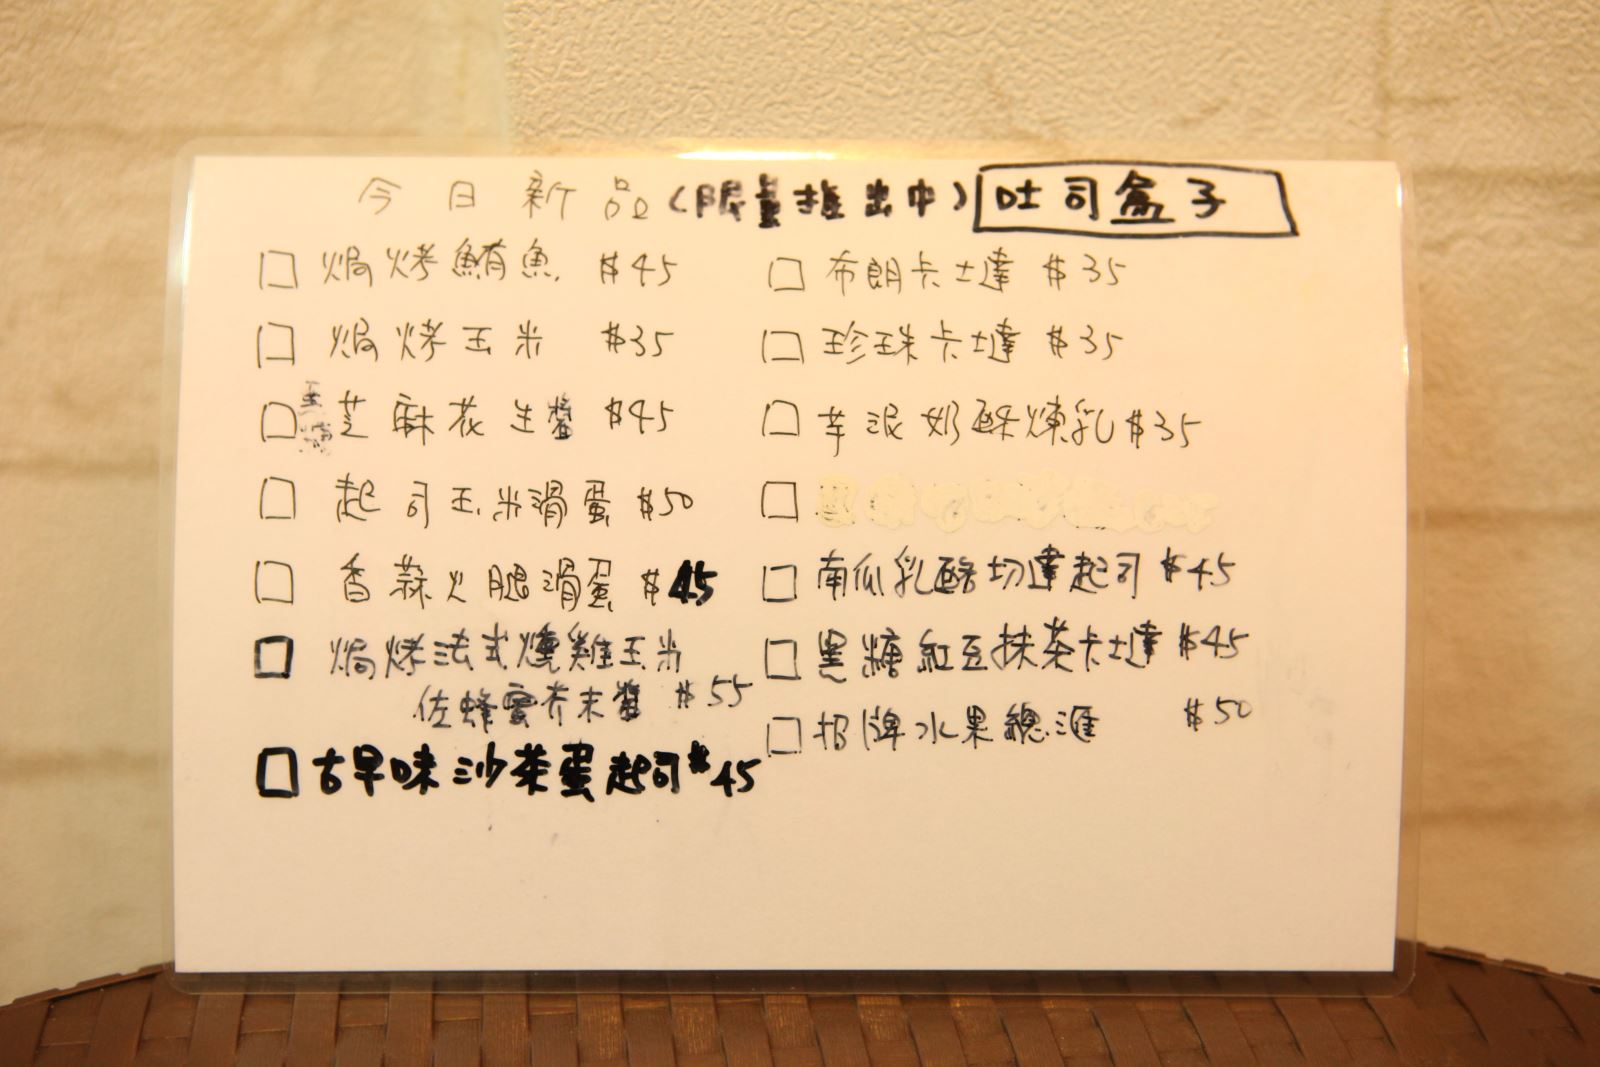 今日新品(限量推出中) 吐司盒子
□ 焗烤鮪魚 $45
□ 焗烤玉米 $35
□ 芝麻花生醬 $45
□ 起司玉米滑蛋 $50
□ 香蒜火腿滑蛋 $45
□ 焗烤法式燻雞玉米
佐蜂蜜芥末醬 $55
□ 古早味沙茶蛋起司 $45
□ 布朗卡士達 $35
□ 珍珠卡士達 $35
□ 芋泥奶酥煉乳 $35
□
□ 南瓜乳酪切達起司 $45
□ 黑糖紅豆抹茶卡士達 $45
□ 招牌水果總滙 $50